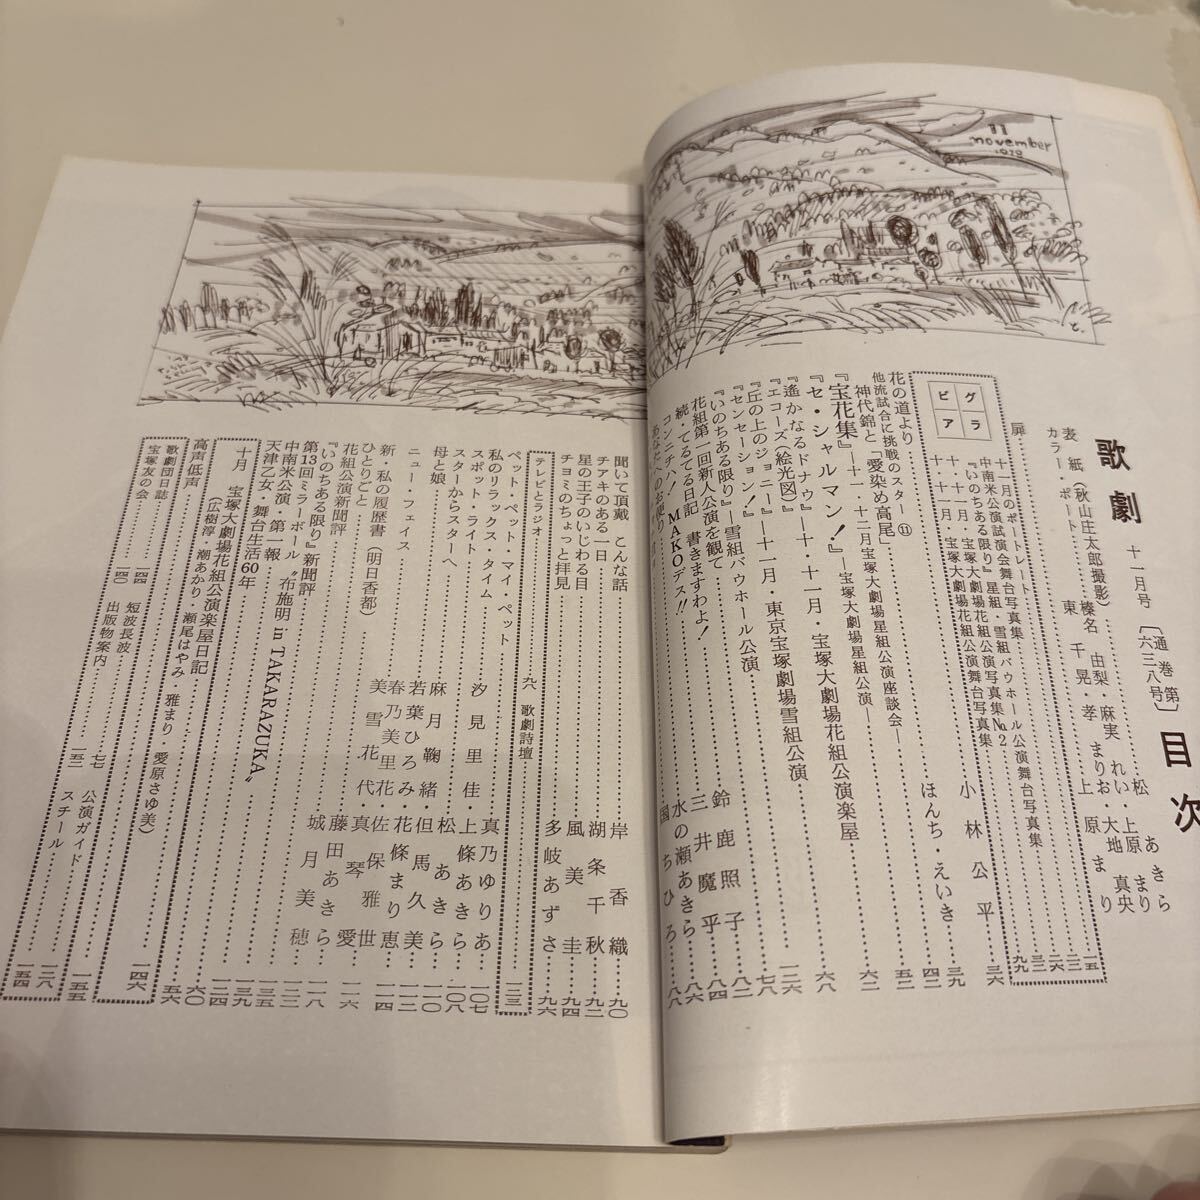 11
november
歌劇 十一月号 〔通巻第六三八号〕 目次
表紙(秋山庄太郎撮影)
カラー・ポート
扉
グラビア
十一月のポートレート
中南米公演試演会舞台写真集
『いのちある限り』星組・雪組バウホール公演舞台写真集
十・十一月・宝塚大劇場花組公演写真集No.2
十・十一月・宝塚大劇場花組公演舞台写真集
花の道より……小林公平……三六
他流試合に挑戦のスター⑪
神代錦と「愛染め高尾」……ほんち・えいき……四二
『宝花集』―十一・十二月宝塚大劇場星組公演座談会―……五二
『セ・シャルマン!』―宝塚大劇場星組公演―……六二
『遙かなるドナウ』―十・十一月・宝塚大劇場花組公演楽屋……六八
『エコーズ(絵光図)』
『丘の上のジョニー』―十一月・東京宝塚劇場雪組公演……一二六
『センセーション!』
『いのちある限り』―雪組バウホール公演……七八
花組第一回新人公演を観て……鈴鹿照子……八二
続・てるてる日記 書きますわよ!……三井魔乎……八四
コンチハ! MAKOデス!!……水の瀬あきら……八六
あなたへのお便り……国ちひろ……八八
聞いて頂戴 こんな話……岸香織……九〇
チアキのある一日……湖条千秋……九二
星の王子のいじわる目……風美圭……九四
チョミのちょっと拝見……多岐あずさ……九六
テレビとラジオ……九八 歌劇詩壇……一三二
ペット・ペット・マイ・ペット……真乃ゆりあ……一〇七
私のリラックス・タイム……汐見里佳
スポット・ライト……上條あきら……一〇八
スターからスターへ……松あきら……一一〇
母と娘……麻月鞠緒・但馬久美……一一二
ニュー・フェイス……若葉ひろみ・花條まり恵……一一四
新・私の履歴書(明日香都)……春乃美里花・佐保雅世
ひとりごと……美雪花代・真琴愛……一一六
花組公演新聞評……藤田あきら……一一八
『いのちある限り』新聞評……城月美穂……一二二
第13回ミラーボール〝布施明 in TAKARAZUKA〟……一三五
中南米公演・第一報……一三九
天津乙女・舞台生活60年……一四二
十月 宝塚大劇場花組公演楽屋日記……六〇
(広樹淳・潮あかり・瀬尾はやみ・雅まり・愛原さゆ美)
高声低声……一五六
歌劇団日誌……一四四 短波長波……一四六
宝塚友の会……一四〇 出版物案内……七七 公演ガイド……一五五
一五二 スチール……一二八
一五四